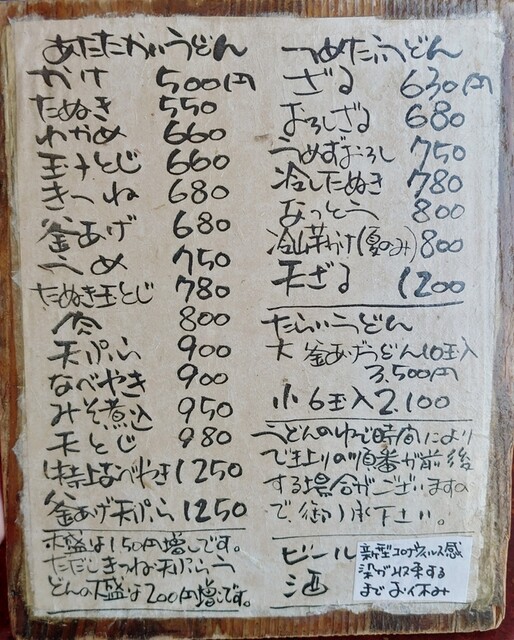 あたたかいうどん
かけ 500円
たぬき 550
わかめ 660
玉子とじ 660
きつね 680
釜あげ 680
うめ 750
たぬき玉とじ 780
肉 800
天ぷら 900
なべやき 900
みそ煮込 950
天とじ 980
特上なべやき 1250
釜あげ天ぷら 1250
大盛は150円増しです。
ただしきつね天ぷらう
どんの大盛は200円増です。
つめたいうどん
ざる 630円
おろしざる 680
うめずおろし 750
冷したぬき 780
なっとう 800
冷山芋かけ(夏のみ) 800
天ざる 1200
たらいうどん
大 釜あげうどん10玉入
3,500円
小 6玉入 2,100
うどんのゆで時間により
でき上りの順番が前後
する場合がございますの
で、御了承下さい。
ビール
酒
新型コロナウィルス感
染が収束する
までお休み